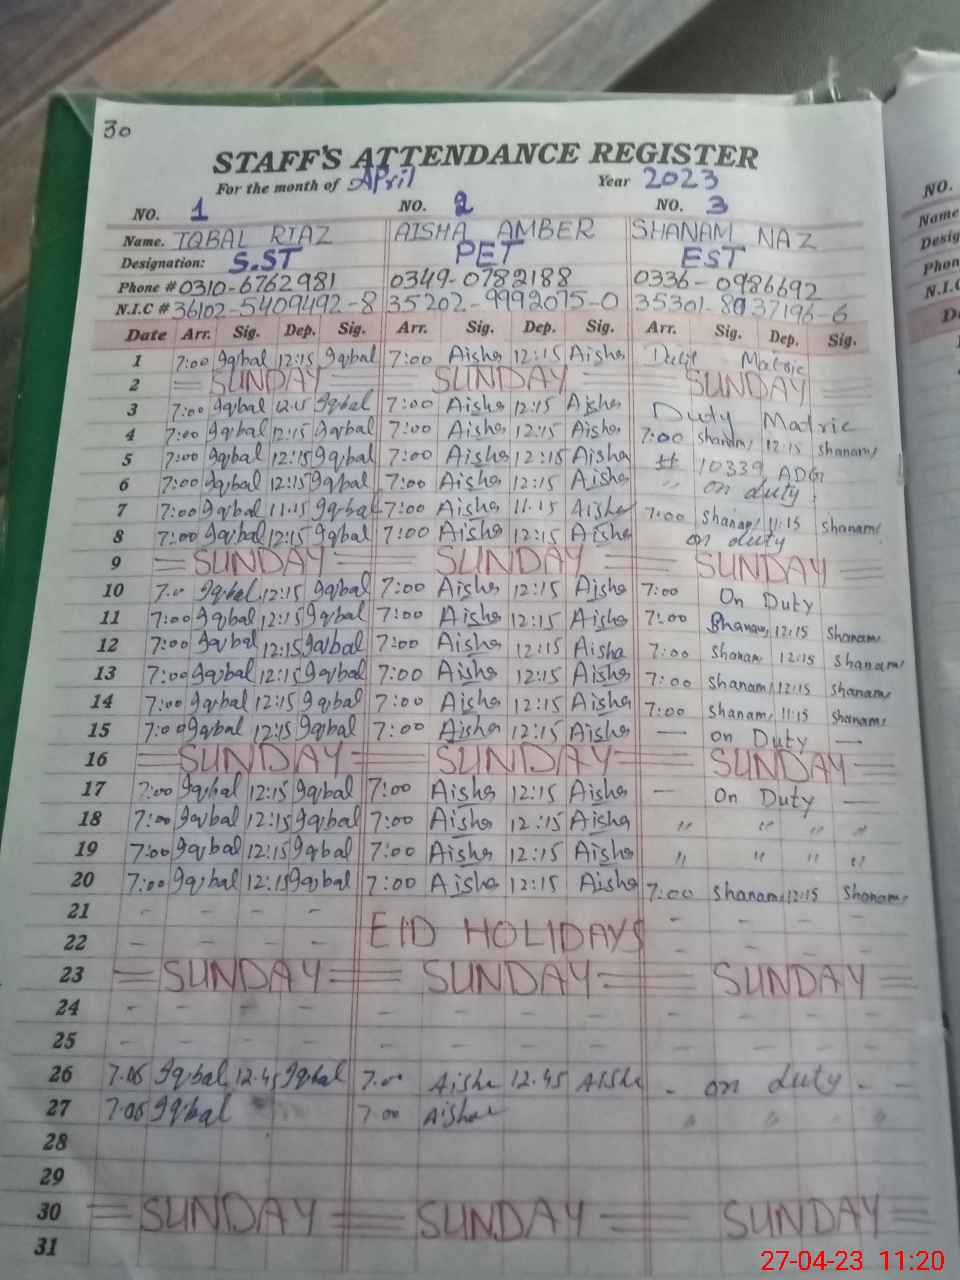 30
STAFF'S ATTENDANCE REGISTER
For the month of April Year 2023
NO. 1 NO. 2 NO. 3 NO.
Name. IQBAL RIAZ AISHA AMBER SHANAM NAZ Name
Designation: S.ST PET EST Desig
Phone # 0310-6762981 0349-0782188 0336-0986692 Phon
N.I.C # 36102-5409492-8 35202-9992075-0 35301-8937196-6 N.I.C
Date Arr. Sig. Dep. Sig. Arr. Sig. Dep. Sig. Arr. Sig. Dep. Sig.
1 7:00 Iqbal 12:15 Iqbal 7:00 Aisha 12:15 Aisha Matric
2 SUNDAY SUNDAY SUNDAY
3 7:00 Iqbal 12:15 Iqbal 7:00 Aisha 12:15 Aisha Duty Matric
4 7:00 Iqbal 12:15 Iqbal 7:00 Aisha 12:15 Aisha 7:00 Shanam 12:15 Shanam
5 7:00 Iqbal 12:15 Iqbal 7:00 Aisha 12:15 Aisha # 10339 ADG
6 7:00 Iqbal 12:15 Iqbal 7:00 Aisha 12:15 Aisha " on duty
7 7:00 Iqbal 11:15 Iqbal 7:00 Aisha 11:15 Aisha 7:00 Shanam 11:15 Shanam
8 7:00 Iqbal 12:15 Iqbal 7:00 Aisha 12:15 Aisha on duty
9 SUNDAY SUNDAY SUNDAY
10 7.0 Iqbal 12:15 Iqbal 7:00 Aisha 12:15 Aisha 7:00 On Duty
11 7:00 Iqbal 12:15 Iqbal 7:00 Aisha 12:15 Aisha 7:00 Shanam 12:15 Shanam
12 7:00 Iqbal 12:15 Iqbal 7:00 Aisha 12:15 Aisha 7:00 Shanam 12:15 Shanam
13 7:00 Iqbal 12:15 Iqbal 7:00 Aisha 12:15 Aisha 7:00 Shanam 12:15 Shanam
14 7:00 Iqbal 12:15 Iqbal 7:00 Aisha 12:15 Aisha 7:00 Shanam 11:15 Shanam
15 7:00 Iqbal 12:15 Iqbal 7:00 Aisha 12:15 Aisha — on Duty —
16 SUNDAY SUNDAY SUNDAY
17 7:00 Iqbal 12:15 Iqbal 7:00 Aisha 12:15 Aisha — On Duty —
18 7:00 Iqbal 12:15 Iqbal 7:00 Aisha 12:15 Aisha " " " "
19 7:00 Iqbal 12:15 Iqbal 7:00 Aisha 12:15 Aisha " " " "
20 7:00 Iqbal 12:15 Iqbal 7:00 Aisha 12:15 Aisha 7:00 Shanam 12:15 Shanam
21 - - - - - - - -
22 - - - - EID HOLIDAYS - - - -
23 SUNDAY SUNDAY SUNDAY
24 - - - - - - - - - - - -
25 - - - - - - - - - - - -
26 7.05 Iqbal 12.45 Iqbal 7.00 Aisha 12.45 Aisha - on duty - -
27 7.05 Iqbal 7.00 Aisha " " "
28
29
30 SUNDAY SUNDAY SUNDAY
31
27-04-23 11:20